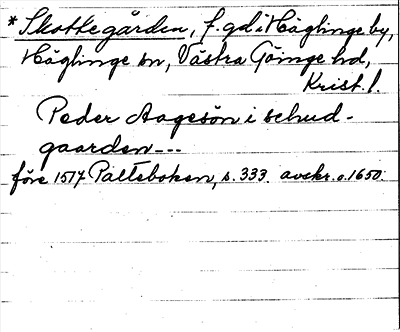 * Skottegården, f. gd i Häglinge by,
Häglinge sn, Västra Göinge hd,
Krist. l.
Peder Aagesön i schud-
gaarden---
före 1517 Palteboken, s. 333. avskr. o. 1650.